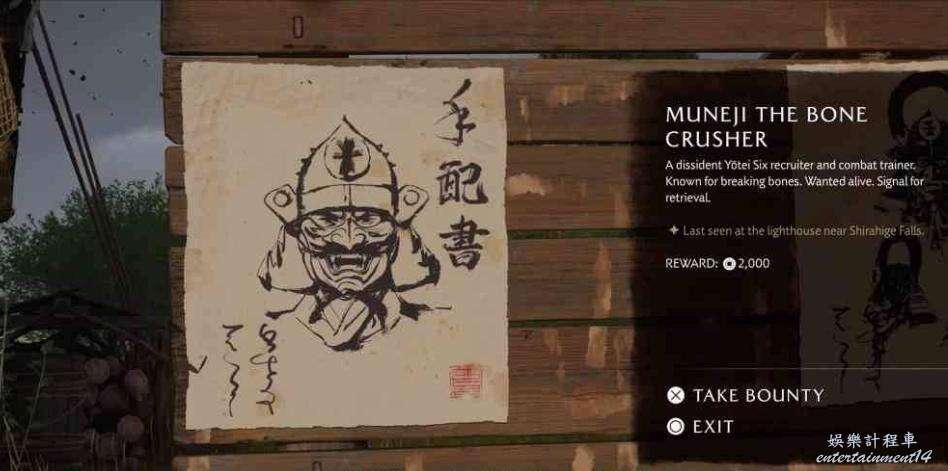 手配書
MUNEJI THE BONE
CRUSHER
A dissident Yōtei Six recruiter and combat trainer.
Known for breaking bones. Wanted alive. Signal for
retrieval.
Last seen at the lighthouse near Shirahige Falls.
REWARD: 2,000
TAKE BOUNTY
EXIT
娛樂計程車
entertainment14